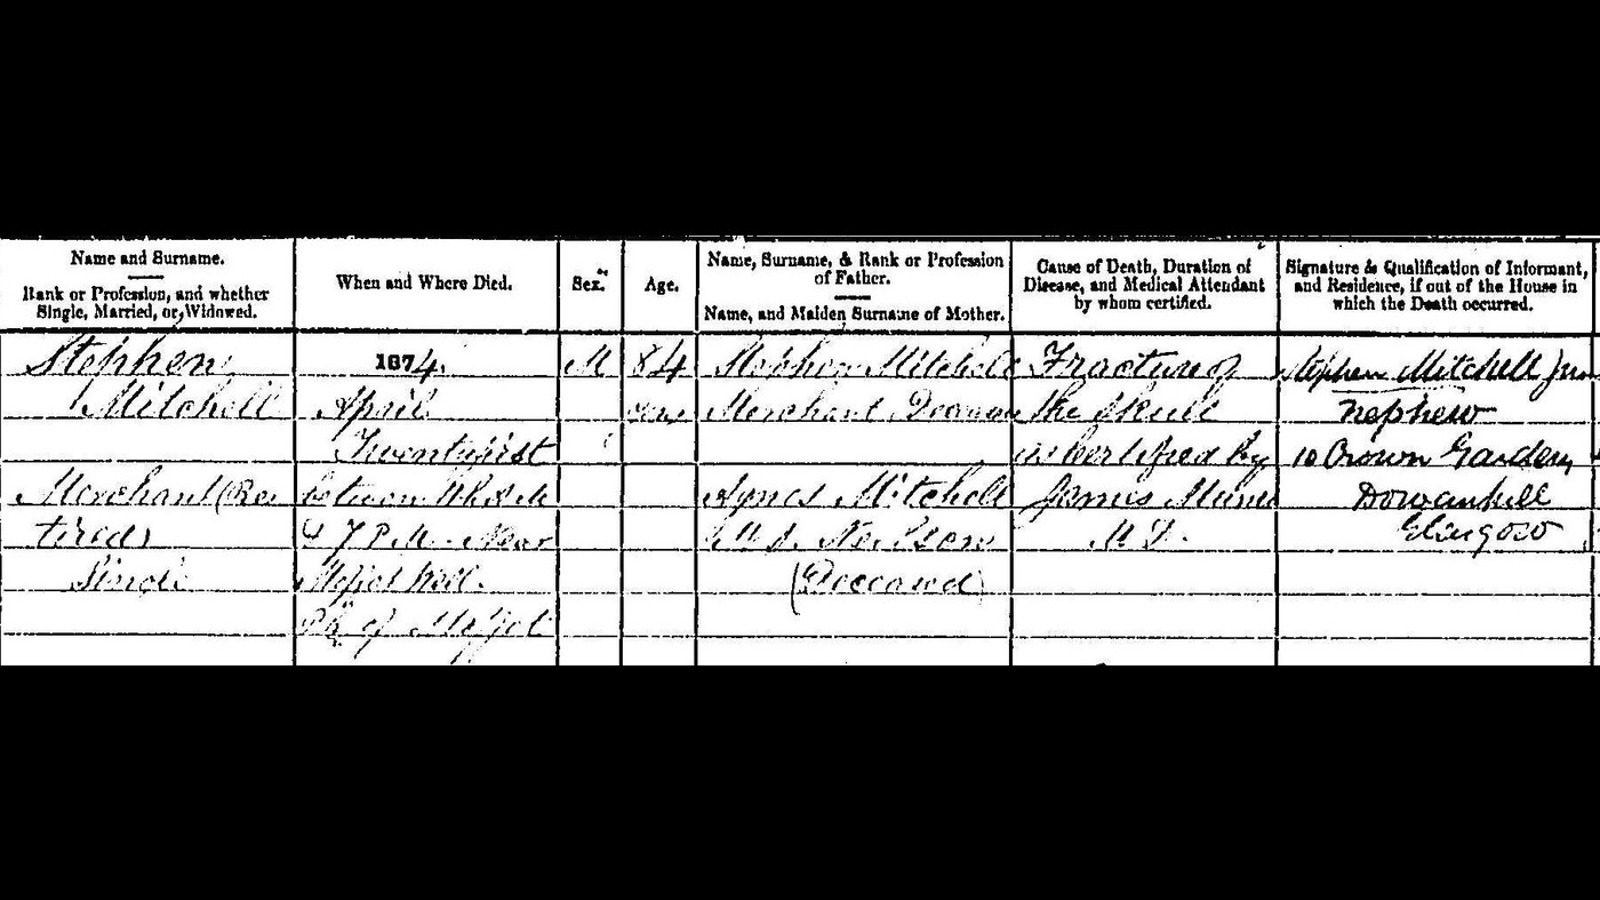 Name and Surname.
Rank or Profession, and whether
Single, Married, or Widowed.
When and Where Died.
Sex.
Age.
Name, Surname, & Rank or Profession
of Father.
Name, and Maiden Surname of Mother.
Cause of Death, Duration of
Disease, and Medical Attendant
by whom certified.
Signature & Qualification of Informant,
and Residence, if out of the House in
which the Death occurred.
Stephen
Mitchell
Merchant (Re
tired)
Single
1874.
April
Twenty first
between
& 7 P.M. Near
Moffat Well.
Ph of Moffat
M
84
years
Stephen Mitchell
Merchant
Agnes Mitchell
M.S. Neilson
(Deceased)
Fracture of
the Skull
as Certified by
James
M.D.
Stephen Mitchell Junr
Nephew
10 Crown Gardens
Dowanhill
Glasgow